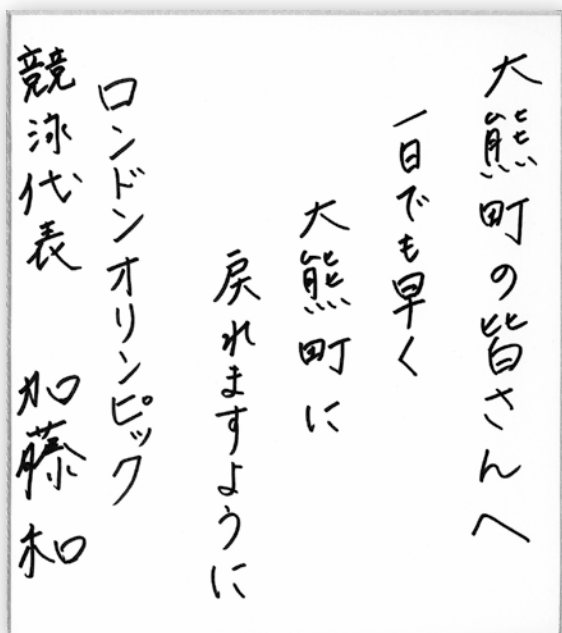 大熊町の皆さんへ
一日でも早く
大熊町に
戻れますように
ロンドンオリンピック
競泳代表 加藤和